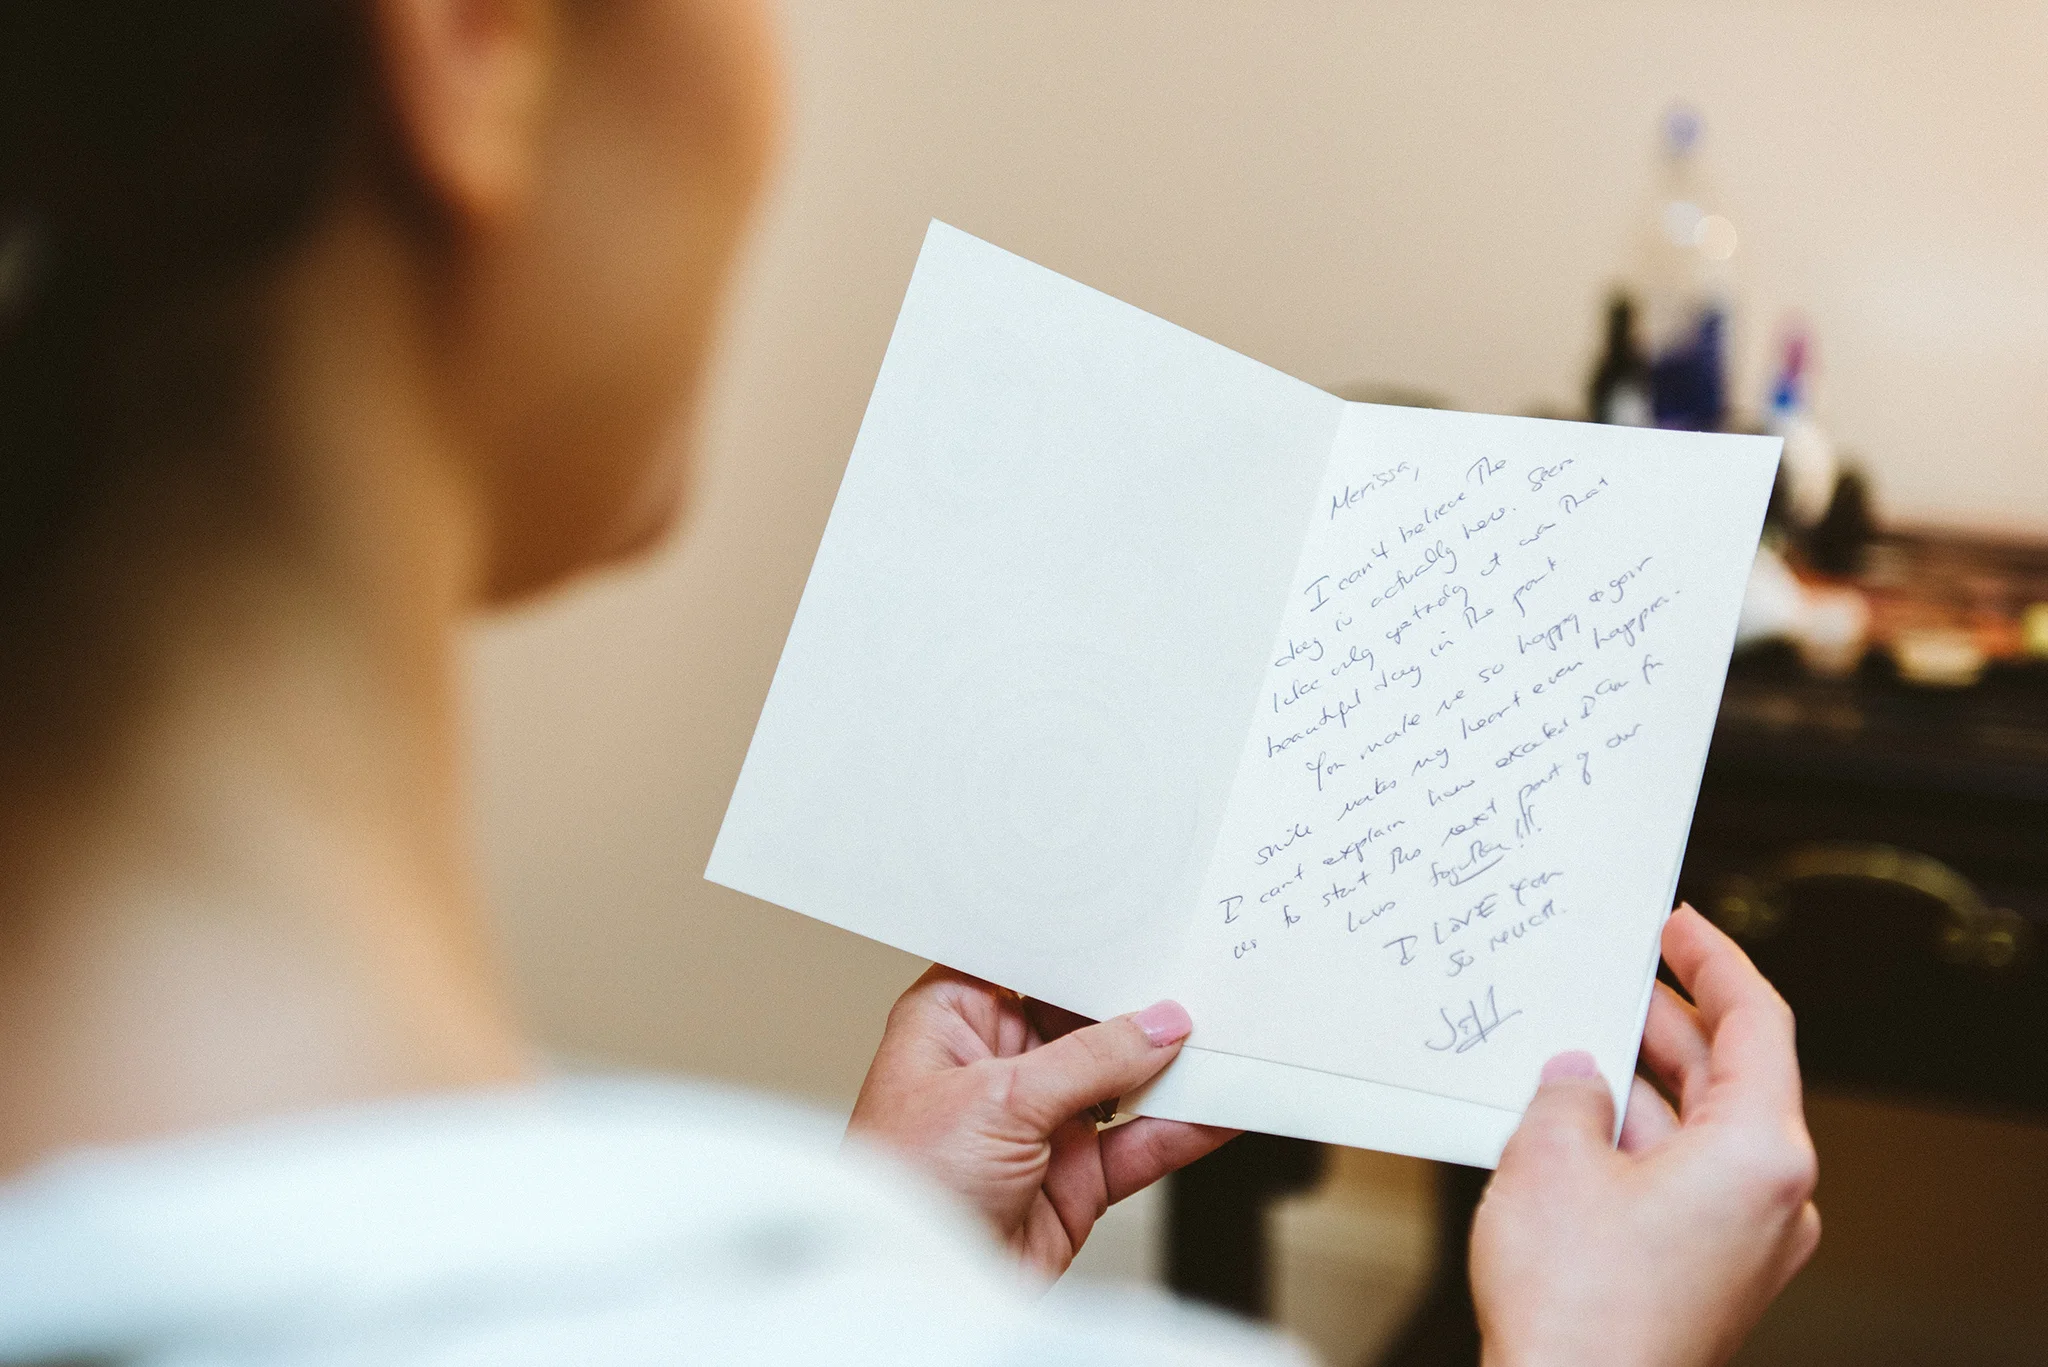 Merissa,
I can't believe the
day is actually here. Seems
like only yesterday it was that
beautiful day in the park
You make me so happy & your
smile makes my heart even happier.
I can't explain how excited I am for
us to start the next part of our
lives together!!!
I LOVE You
So MUCH.